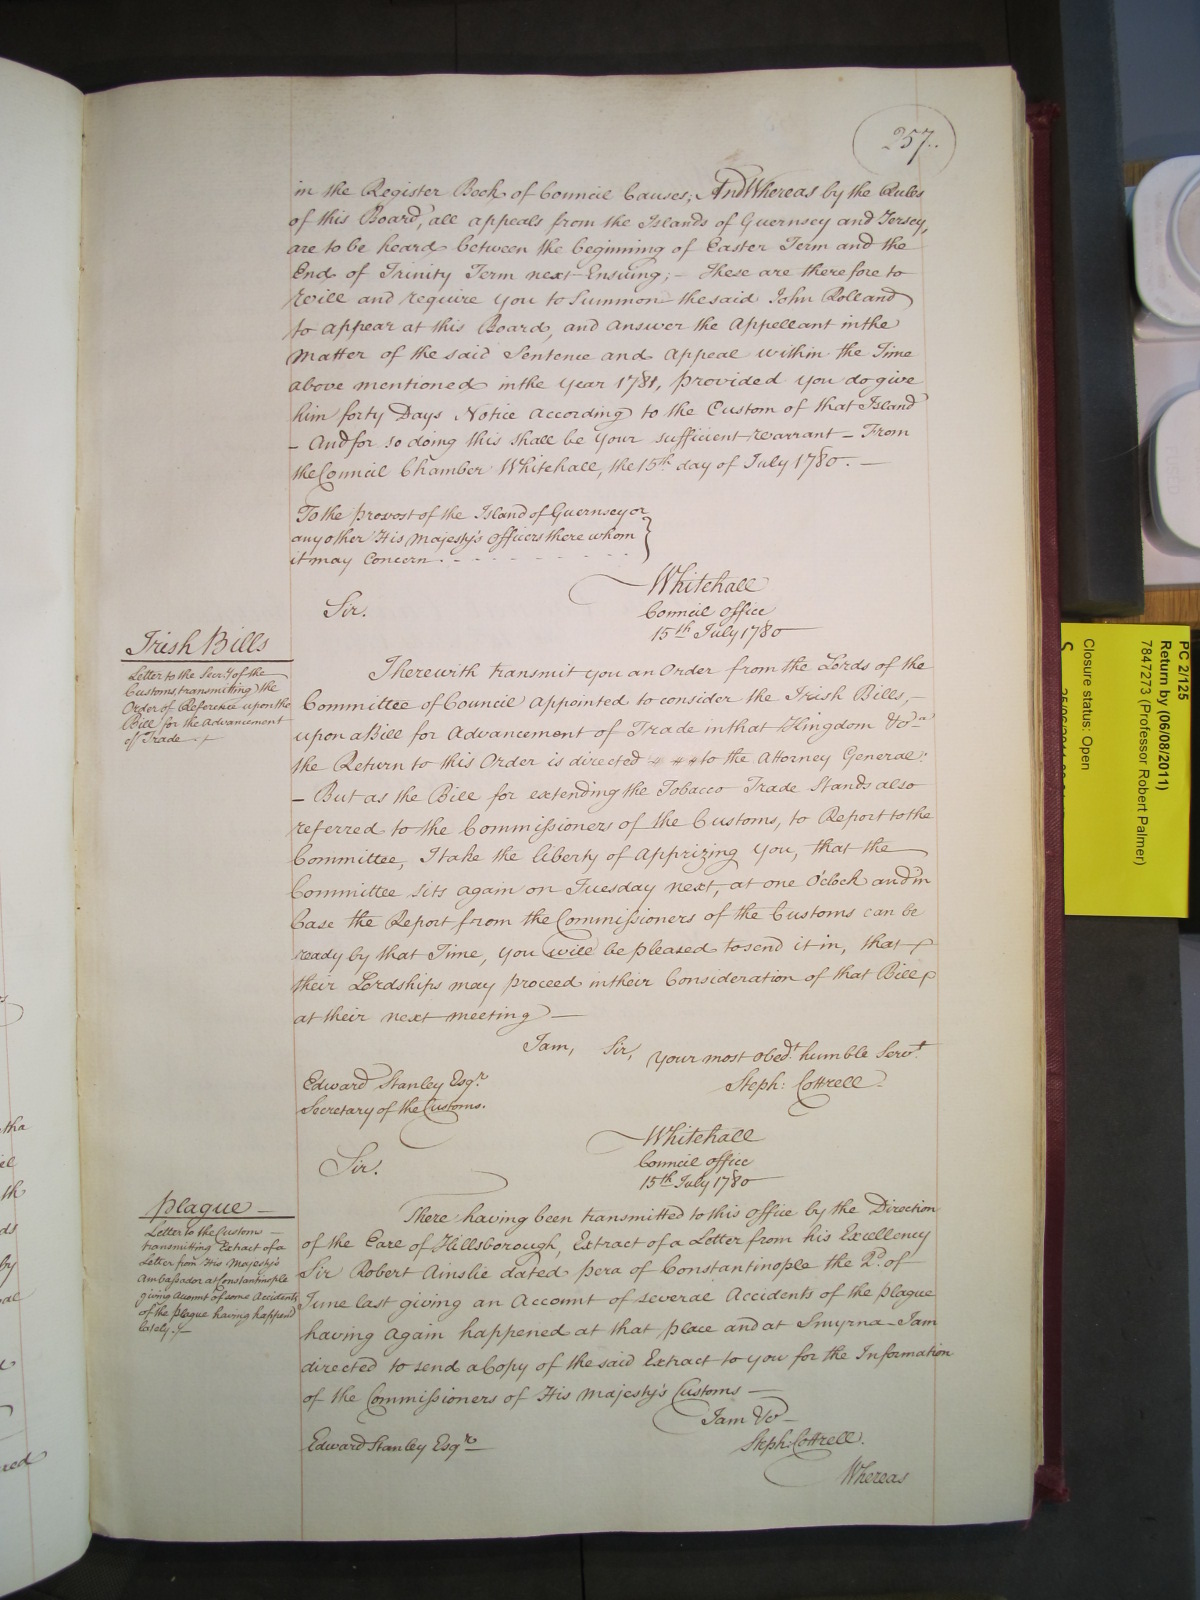 257.
in the Register Book of Council Causes; And Whereas by the Rules
of this Board, all appeals from the Islands of Guernsey and Jersey,
are to be heard between the beginning of Easter Term and the
End of Trinity Term next Ensuing; – These are therefore to
Will and require you to Summon the said John Rolland
to appear at this Board, and answer the Appellant in the
Matter of the said Sentence and Appeal within the Time
above mentioned in the Year 1781, provided you do give
him forty Days Notice According to the Custom of that Island
– And for so doing this shall be your sufficient Warrant – From
the Council Chamber Whitehall, the 15th day of July 1780. —
To the Provost of the Island of Guernsey or
any other His Majesty's Officers there whom
it may Concern
Whitehall
Council Office
15th July 1780
Sir.
Irish Bills
Letter to the Secry of the
Customs, transmitting the
Order of Reference upon the
Bill for the Advancement
of Trade
I herewith transmit you an Order from the Lords of the
Committee of Council Appointed to consider the Irish Bills, –
upon a Bill for Advancement of Trade in that Kingdom &ca
the Return to this Order is directed to the Attorney General:
– But as the Bill for extending the Tobacco Trade Stands also
referred to the Commissioners of the Customs, to Report to the
Committee, I take the liberty of Apprizing you, that the
Committee sits again on Tuesday next, at one O'Clock and in
Case the Report from the Commissioners of the Customs can be
ready by that Time, you will be pleased to send it in, that
their Lordships may proceed in their Consideration of that Bill
at their next meeting —
I am, Sir, your most obedt humble Servt
Steph: Cottrell.
Edward Stanley Esqr
Secretary of the Customs.
Whitehall
Council Office
15th July 1780
Sir.
Plague –
Letter to the Custom
transmitting Extract of a
Letter from His Majesty's
Ambassador at Constantinople
giving Account of some Accidents
of the Plague having happend
lately.
There having been transmitted to this Office by the Direction
of the Earl of Hillsborough, Extract of a Letter from his Excellency
Sir Robert Ainslie dated Pera of Constantinople the 2d of
June last giving an Account of several Accidents of the Plague
having Again happened at that place and at Smyrna – I am
directed to send a Copy of the said Extract to you for the Information
of the Commissioners of His Majesty's Customs —
I am &c
Steph: Cottrell.
Edward Stanley Esqr
Whereas
PC 2/125
Return by (06/08/2011)
7847273 (Professor Robert Palmer)
Closure status: Open